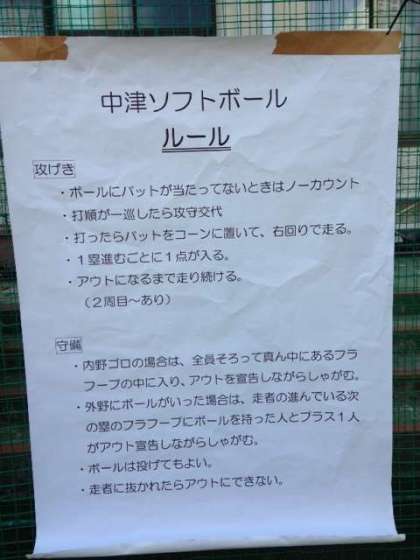 中津ソフトボール
ルール
攻げき
・ボールにバットが当たってないときはノーカウント
・打順が一巡したら攻守交代
・打ったらバットをコーンに置いて、右回りで走る。
・１塁進むごとに１点が入る。
・アウトになるまで走り続ける。
（２周目～あり）
守備
・内野ゴロの場合は、全員そろって真ん中にあるフラ
フープの中に入り、アウトを宣告しながらしゃがむ。
・外野にボールがいった場合は、走者の進んでいる次
の塁のフラフープにボールを持った人とプラス１人
がアウト宣告しながらしゃがむ。
・ボールは投げてもよい。
・走者に抜かれたらアウトにできない。